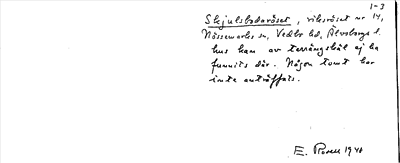 1-3
Skjulsbodaröset, riksröset nr 14,
Nössemarks sn, Vedbo hd, Älvsborgs l.
hus kan av terrängskäl ej ha
funnits där. Någon tomt har
inte anträffats.
E. Rosell 1940